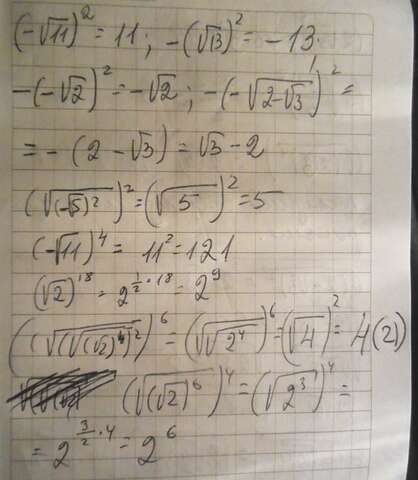 (-√11)² = 11; -(√13)² = -13.
-(-√2)² = -√2; -(-√(2-√3))² =
= -(2-√3) = √3-2
(√((-√5)²))² = (√5)² = 5
(-√11)⁴ = 11² = 121
(√2)¹⁸ = 2^(1/2·18) = 2⁹
((√(√(√2)⁴)²))⁶ = (√√2⁴)⁶ = (√4)² = 4(2)
(√(√2)⁶)⁴ = (√2³)⁴ =
= 2^(3/2·4) = 2⁶